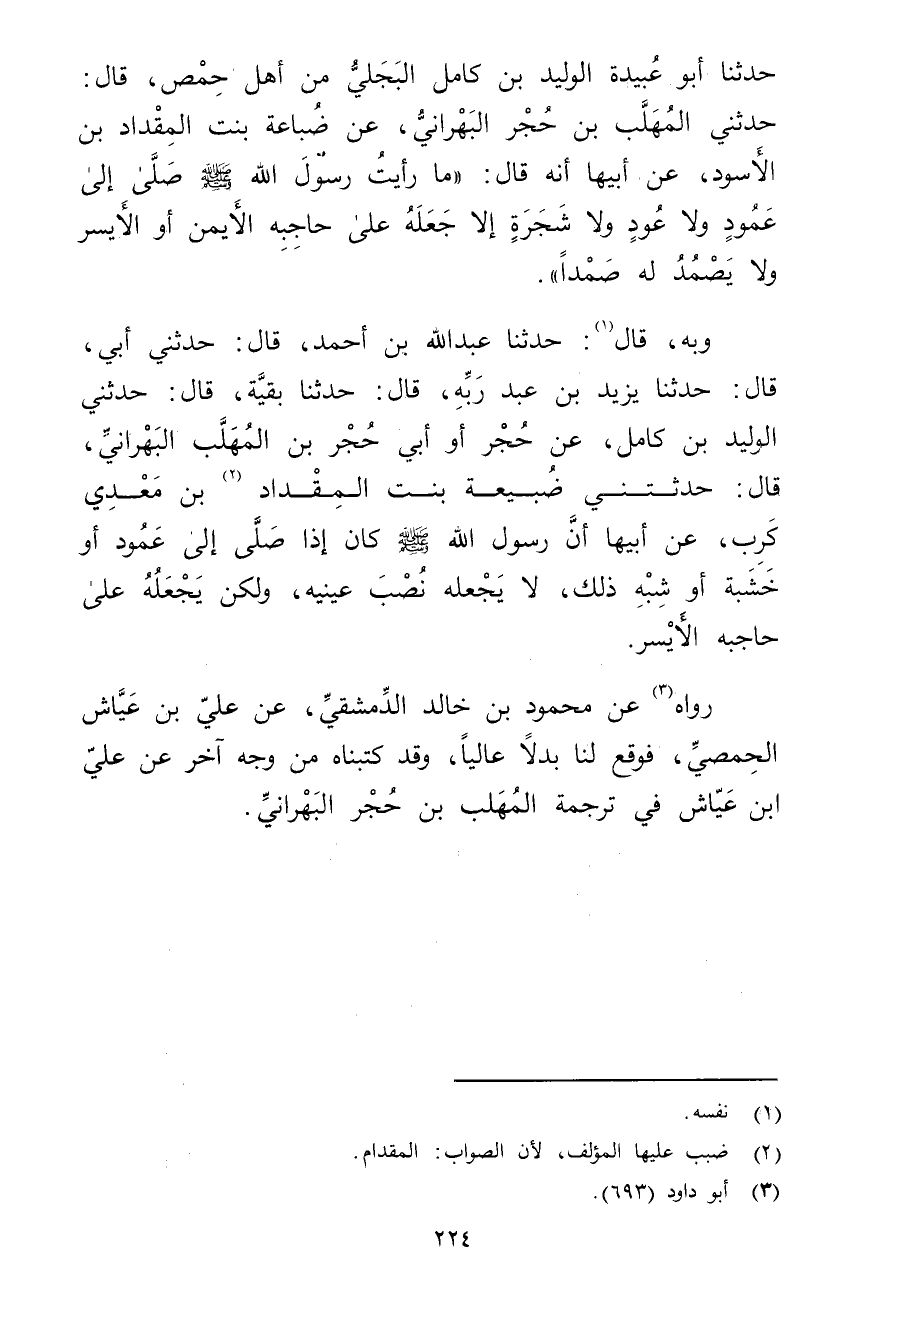 حدثنا أبو عُبيدة الوليد بن كامل البَجَليُّ من أهل حِمْص، قال:
حدثني المُهَلَّب بن حُجْر البَهْرانيُّ، عن ضُباعة بنت المِقْداد بن
الأَسود، عن أبيها أنه قال: «ما رأيتُ رسولَ الله ﷺ صَلَّىٰ إلىٰ
عَمُودٍ ولا عُودٍ ولا شَجَرَةٍ إلا جَعَلَهُ علىٰ حاجِبِه الأَيمن أو الأَيسر
ولا يَصْمُدُ له صَمْداً».
وبه، قال(١): حدثنا عبدالله بن أحمد، قال: حدثني أبي،
قال: حدثنا يزيد بن عبد رَبِّه، قال: حدثنا بقيَّة، قال: حدثني
الوليد بن كامل، عن حُجْر أو أبي حُجْر بن المُهَلَّب البَهْرانيِّ،
قال: حدثتني ضُبيعة بنت المِقْداد (٢) بن مَعْدِي
كَرِب، عن أبيها أنَّ رسول الله ﷺ كان إذا صَلَّى إلىٰ عَمُود أو
خَشَبة أو شِبْهِ ذلك، لا يَجْعله نُصْبَ عينيه، ولكن يَجْعَلُهُ علىٰ
حاجبه الأَيْسر.
رواه(٣) عن محمود بن خالد الدِّمشقيِّ، عن عليّ بن عَيَّاش
الحِمصيِّ، فوقع لنا بدلاً عالياً، وقد كتبناه من وجه آخر عن عليّ
ابن عَيّاش في ترجمة المُهَلب بن حُجْر البَهْرانيِّ.
(١) نفسه.
(٢) ضبب عليها المؤلف، لأن الصواب: المقدام.
(٣) أبو داود (٦٩٣).
٢٢٤